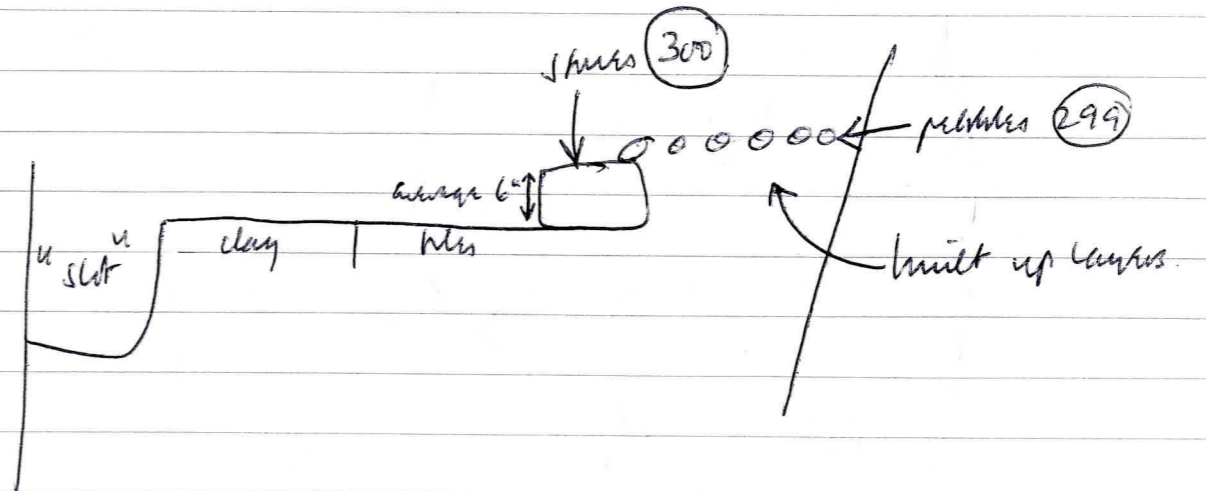 stones 300
pebbles 299
average 6"
"slot" clay tiles
built up layers.